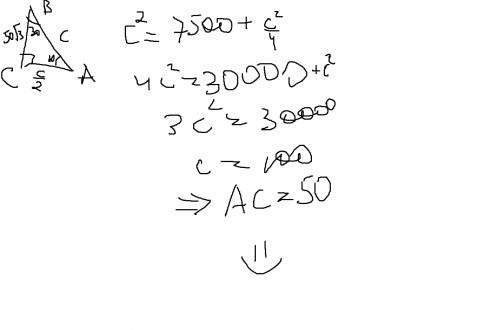 B
50√3 30 c
60
C c/2 A
c² = 7500 + c²/4
4c² = 30000 + c²
3c² = 30000
c = 100
⇒ AC = 50
=)